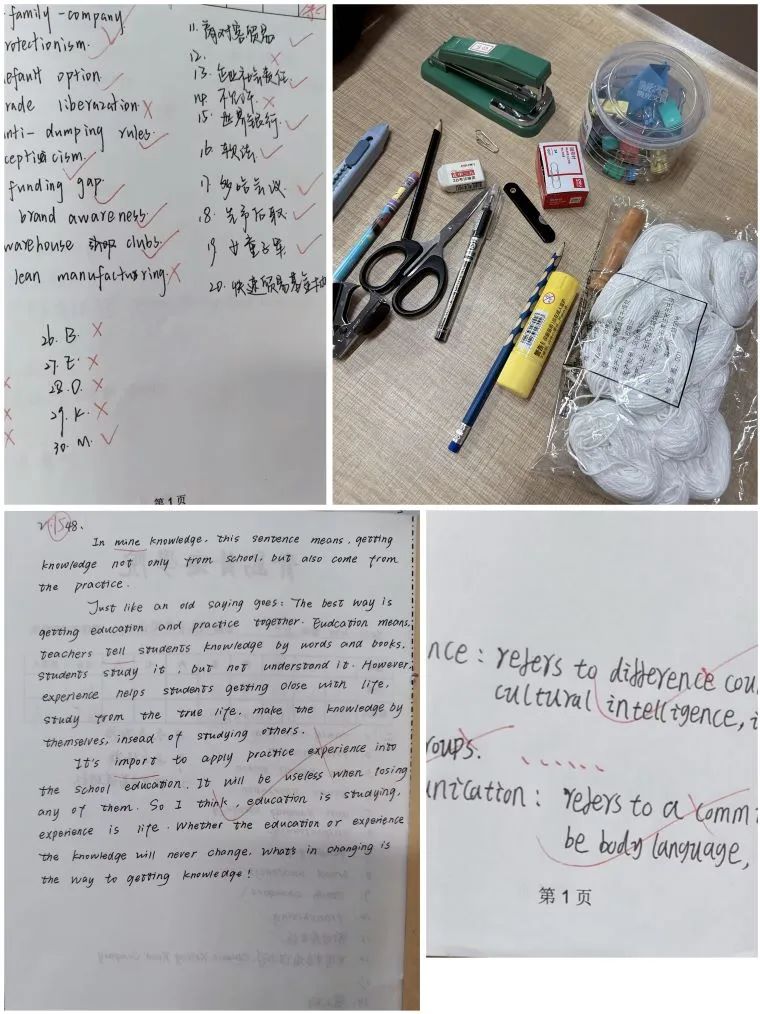 family-company
rotectionism.
efault option
rade liberazation
nti-dumping rules
cepticism.
funding gap
brand awareness
warehouse clubs
lean manufacturing
11. 面对客贸易
12.
13. 企业社会责任
14. 不允许
15. 世界银行
16. 软法
17. 多哈会议
18. 先予后取
19. 女童子军
20. 快速贸易基金
26. B.
27. E.
28. D.
29. K.
30. M.
第1页
48.
In mine knowledge, this sentence means, getting
knowledge not only from school, but also come from
the practice.
Just like an old saying goes: The best way is
getting education and practice together. Eudcation means,
teachers tell students knowledge by words and books,
students study it, but not understand it. However,
experience helps students getting close with life,
study from the true life, make the knowledge by
themselves, insead of studying others.
It's import to apply practice experience into
the school education. It will be useless when losing
any of them. So I think, education is studying,
experience is life. Whether the education or experience
the knowledge will never change, what's in changing is
the way to getting knowledge!
nce: refers to difference cou
cultural intelligence, i
roups.
......
unication: refers to a comm
be body language,
第1页